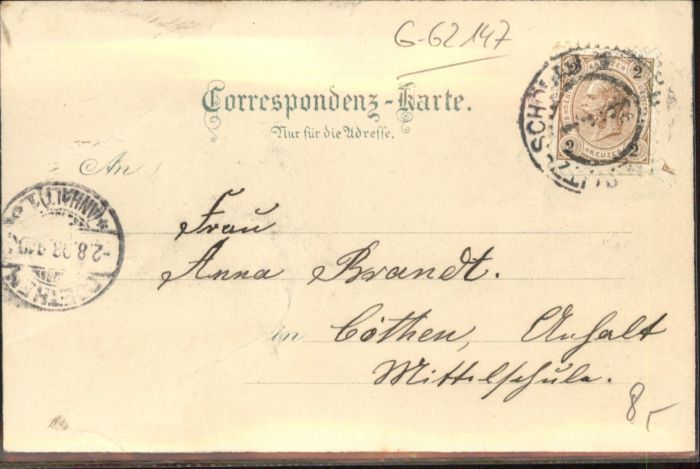 G-62147
Correspondenz-Karte.
Nur für die Adresse.
An
Frau
Anna Brandt.
in Cöthen, Anhalt
Mittelschule.
8,-
2 2
2 KREUZER 2
(ANHALT)
2.8.98